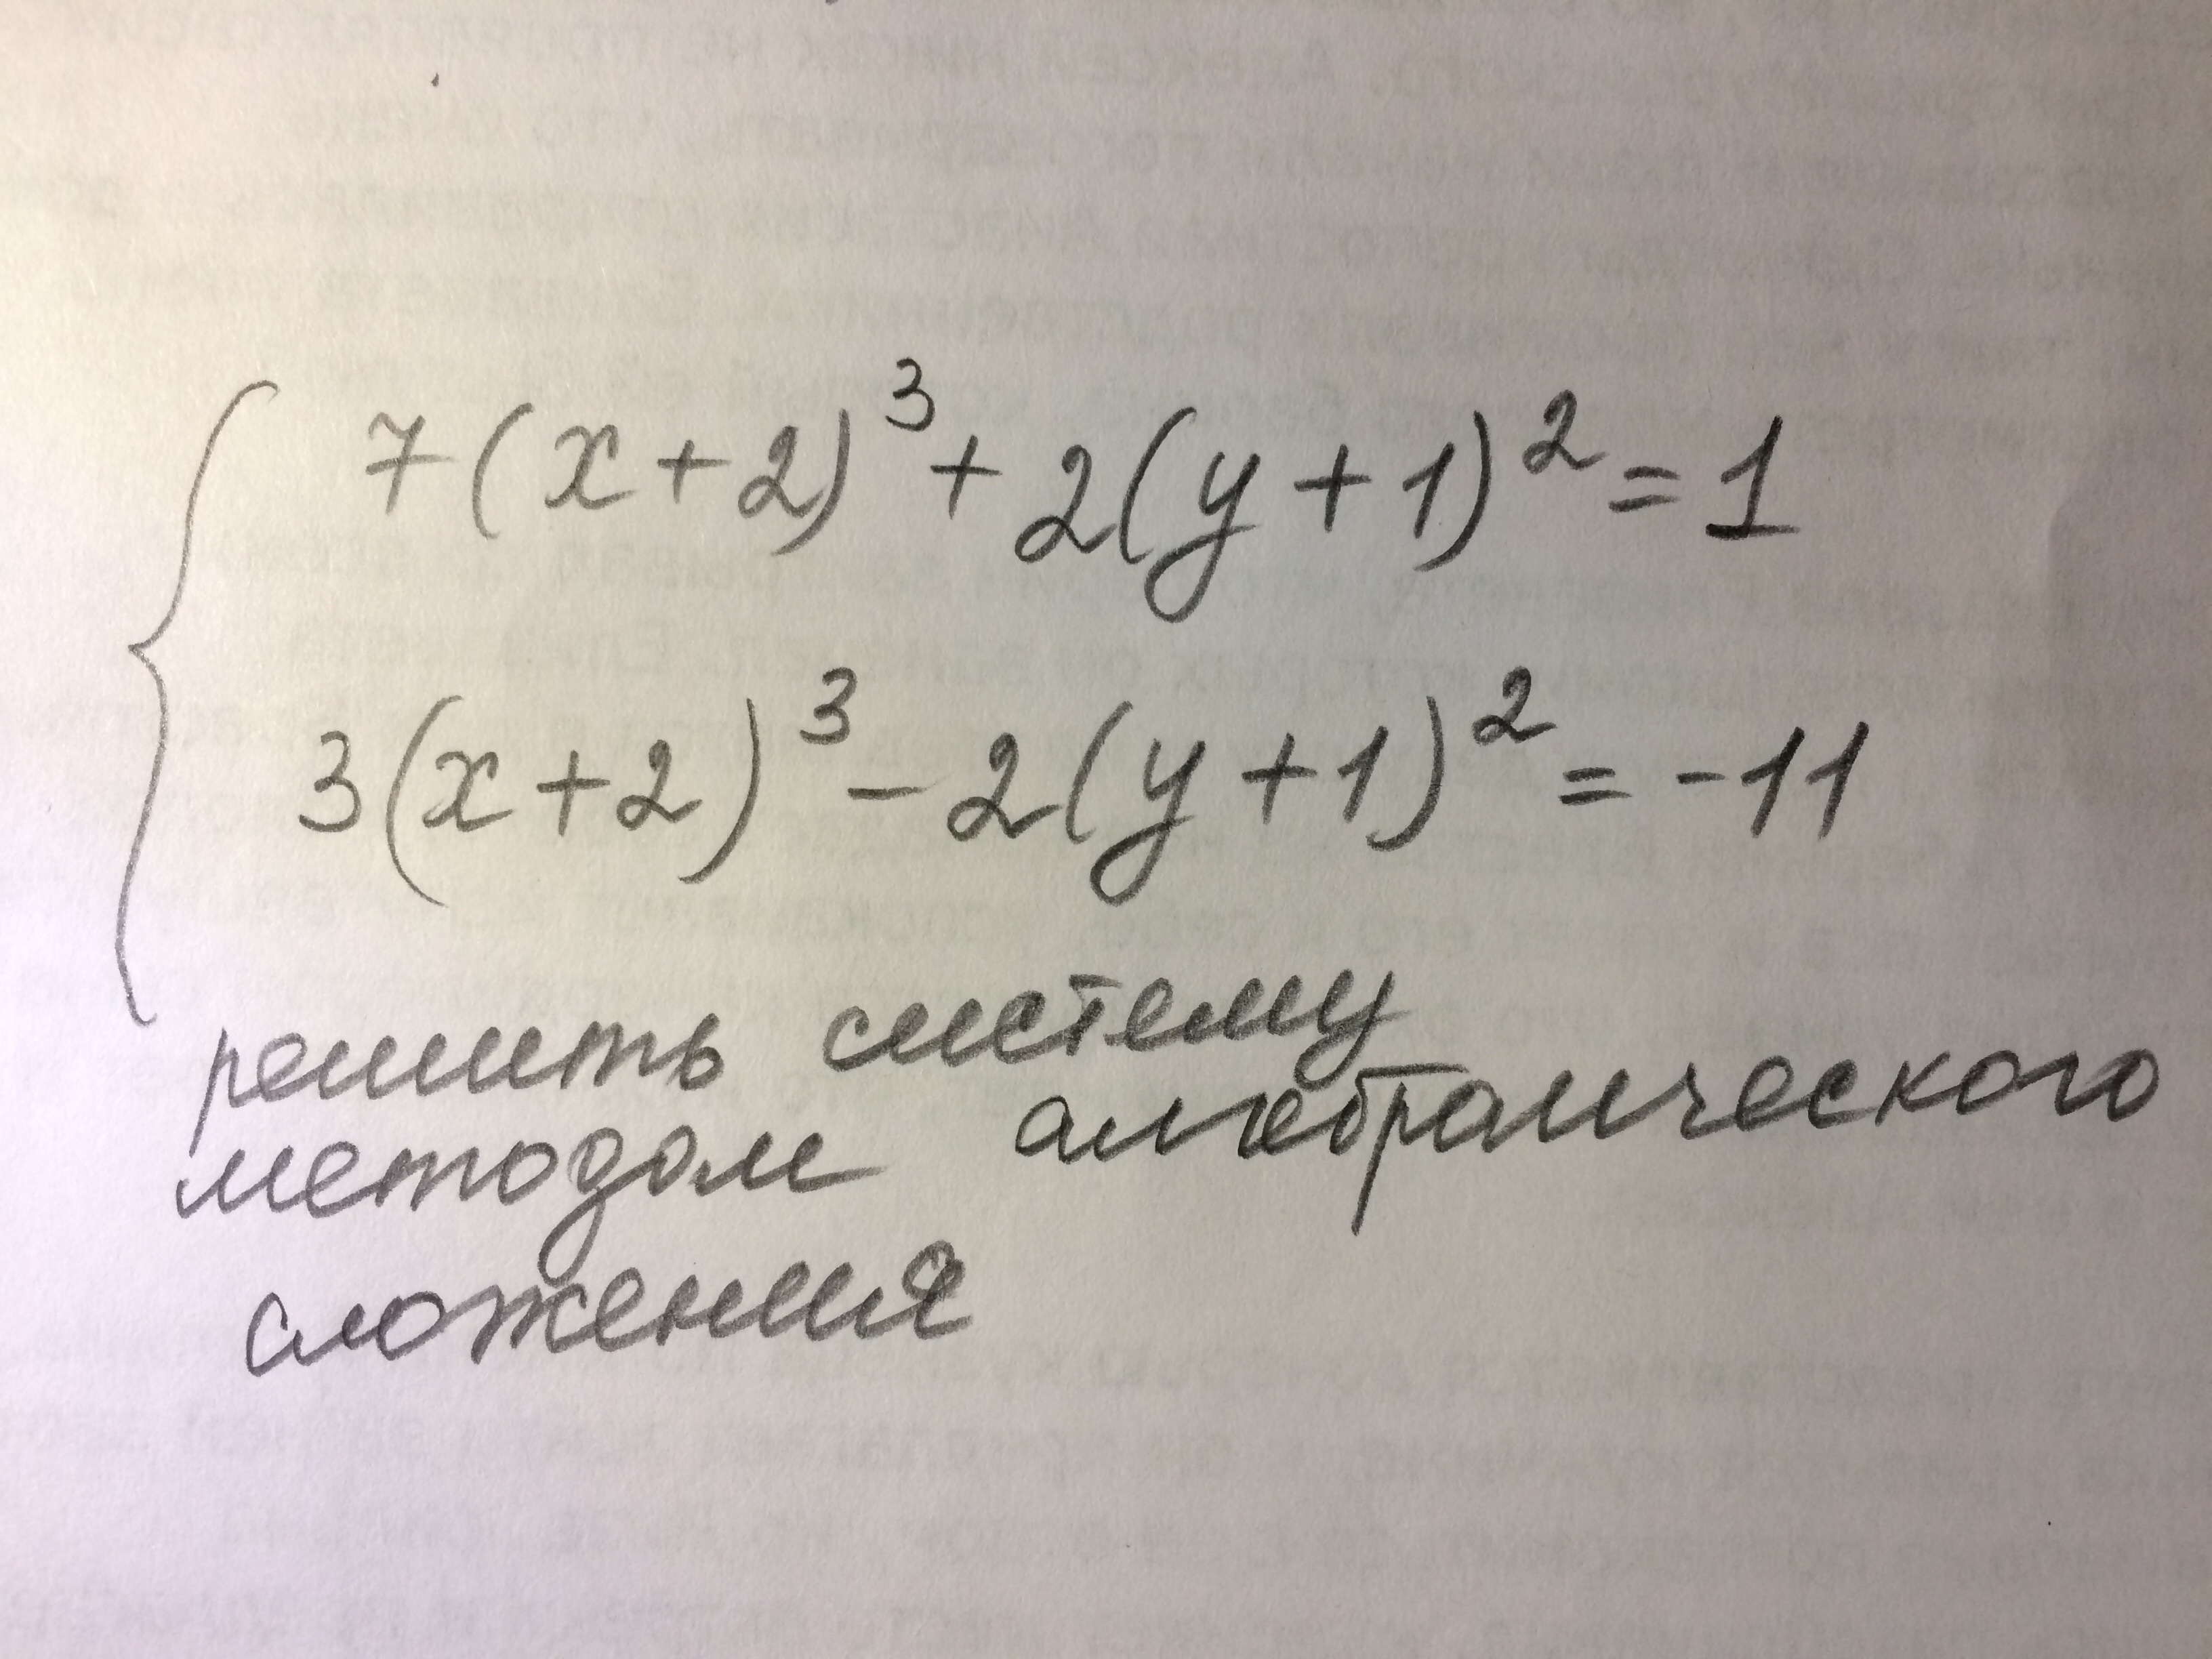 7(x+2)³+2(y+1)²=1
3(x+2)³-2(y+1)²=-11
решить систему
методом алгебраического
сложения